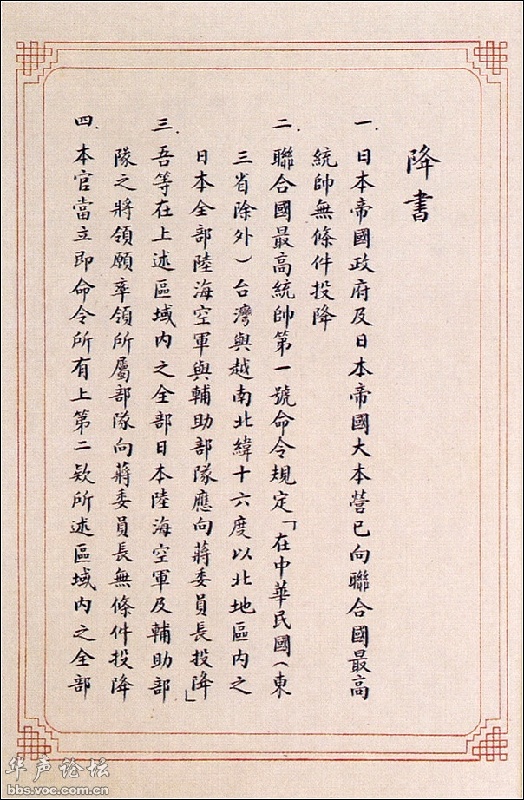 降書
一.日本帝國政府及日本帝國大本營已向聯合國最高
統帥無條件投降
二.聯合國最高統帥第一號命令規定「在中華民國(東
三省除外)台灣與越南北緯十六度以北地區內之
日本全部陸海空軍與輔助部隊應向蔣委員長投降」
三.吾等在上述區域內之全部日本陸海空軍及輔助部
隊之將領願率領所屬部隊向蔣委員長無條件投降
四.本官當立即命令所有上第二欵所述區域內之全部
华声论坛
bbs.voc.com.cn